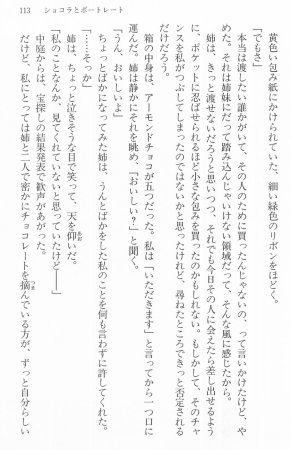 113　ショコラとポートレート
黄色い包み紙にかけられていた、細い緑色のリボンをほどく。
「でもさ」
本当は渡したい誰かがいて、その人のために買ったんじゃないの、って言いかけたけど、や
めた。それは姉妹にだって踏み込んじゃいけない領域だって、そんな風に感じたから。
姉は、きっと渡せないだろうと思いつつ、それでも今日その人に会えたら差し出せるよう
に、ポケットに忍ばせられるほど小さな包みを買ったのかもしれない。もしかして、そのチャ
ンスを私がつぶしてしまったのではないかと思ったけれど、尋ねたところできっと否定される
だけだろう。
箱の中身は、アーモンドチョコが五つだった。私は「いただきます」と言ってから一つ口に
運んだ。姉は静かにそれを眺め、「おいしい？」と聞く。
「うん、おいしいよ」
「……そっか」
ちょっとばかになってみた姉は、うんとばかをした私のことを何も言わずに許してくれた。
姉は、ちょっと泣きそうな目で笑って、天を仰いだ。
「私のことなんか、見てくれていないと思っていたけど――」
中庭からは、宝探しの結果発表で歓声があがった。
だけど、私にとっては姉と二人で密かにチョコレートを摘んでいる方が、ずっと自分らしい